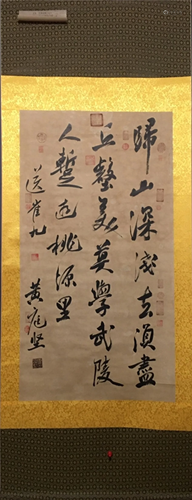 歸山深淺去須盡
丘壑美莫學武陵
人暫遊桃源里
送崔九
黃庭堅